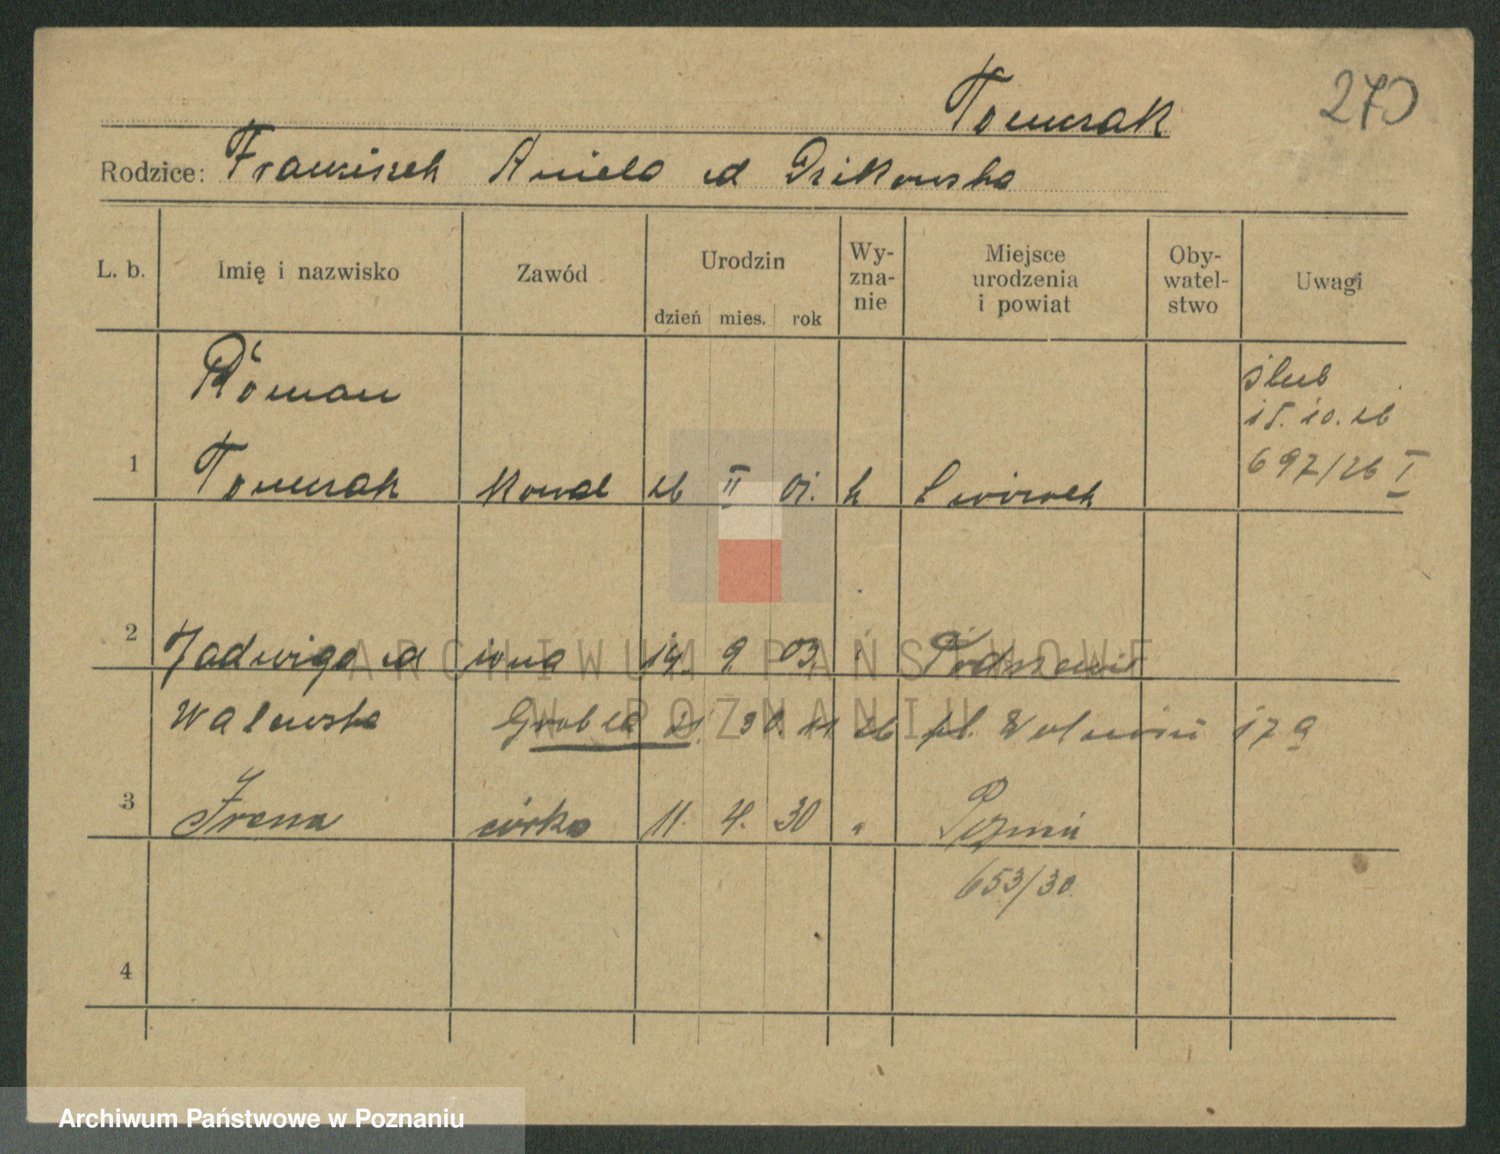 Tomczak
270
Rodzice: Franciszek Aniela ud Dzikowska
L. b.
Imię i nazwisko
Zawód
Urodzin
dzień mies. rok
Wy-
zna-
nie
Miejsce
urodzenia
i powiat
Oby-
watel-
stwo
Uwagi
Roman
ślub
15. 10. 26
1 Tomczak kowal 26 II 01. k
697/26 I
2 Jadwiga ud żona 14. 9. 03
Walewska Grobla 30. 11 26 pl. 17a
3 Irena córka 11. 4. 30 " Poznań
653/30
4
ARCHIWUM PAŃSTWOWE
W POZNANIU
Archiwum Państwowe w Poznaniu